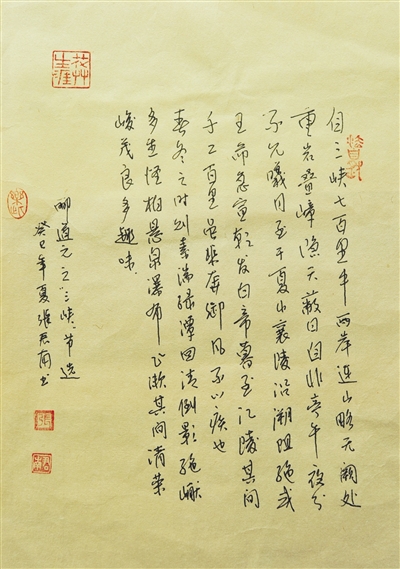 自三峡七百里中两岸连山略无阙处
重岩叠嶂隐天蔽日自非亭午夜分
不见曦月至于夏水襄陵沿溯阻绝或
王命急宣朝发白帝暮至江陵其间
千二百里虽乘奔御风不以疾也
春冬之时则素湍绿潭回清倒影绝巘
多生怪柏悬泉瀑布飞漱其间清荣
峻茂良多趣味
郦道元之三峡节选
癸巳年夏张君南书
花艸生涯
張